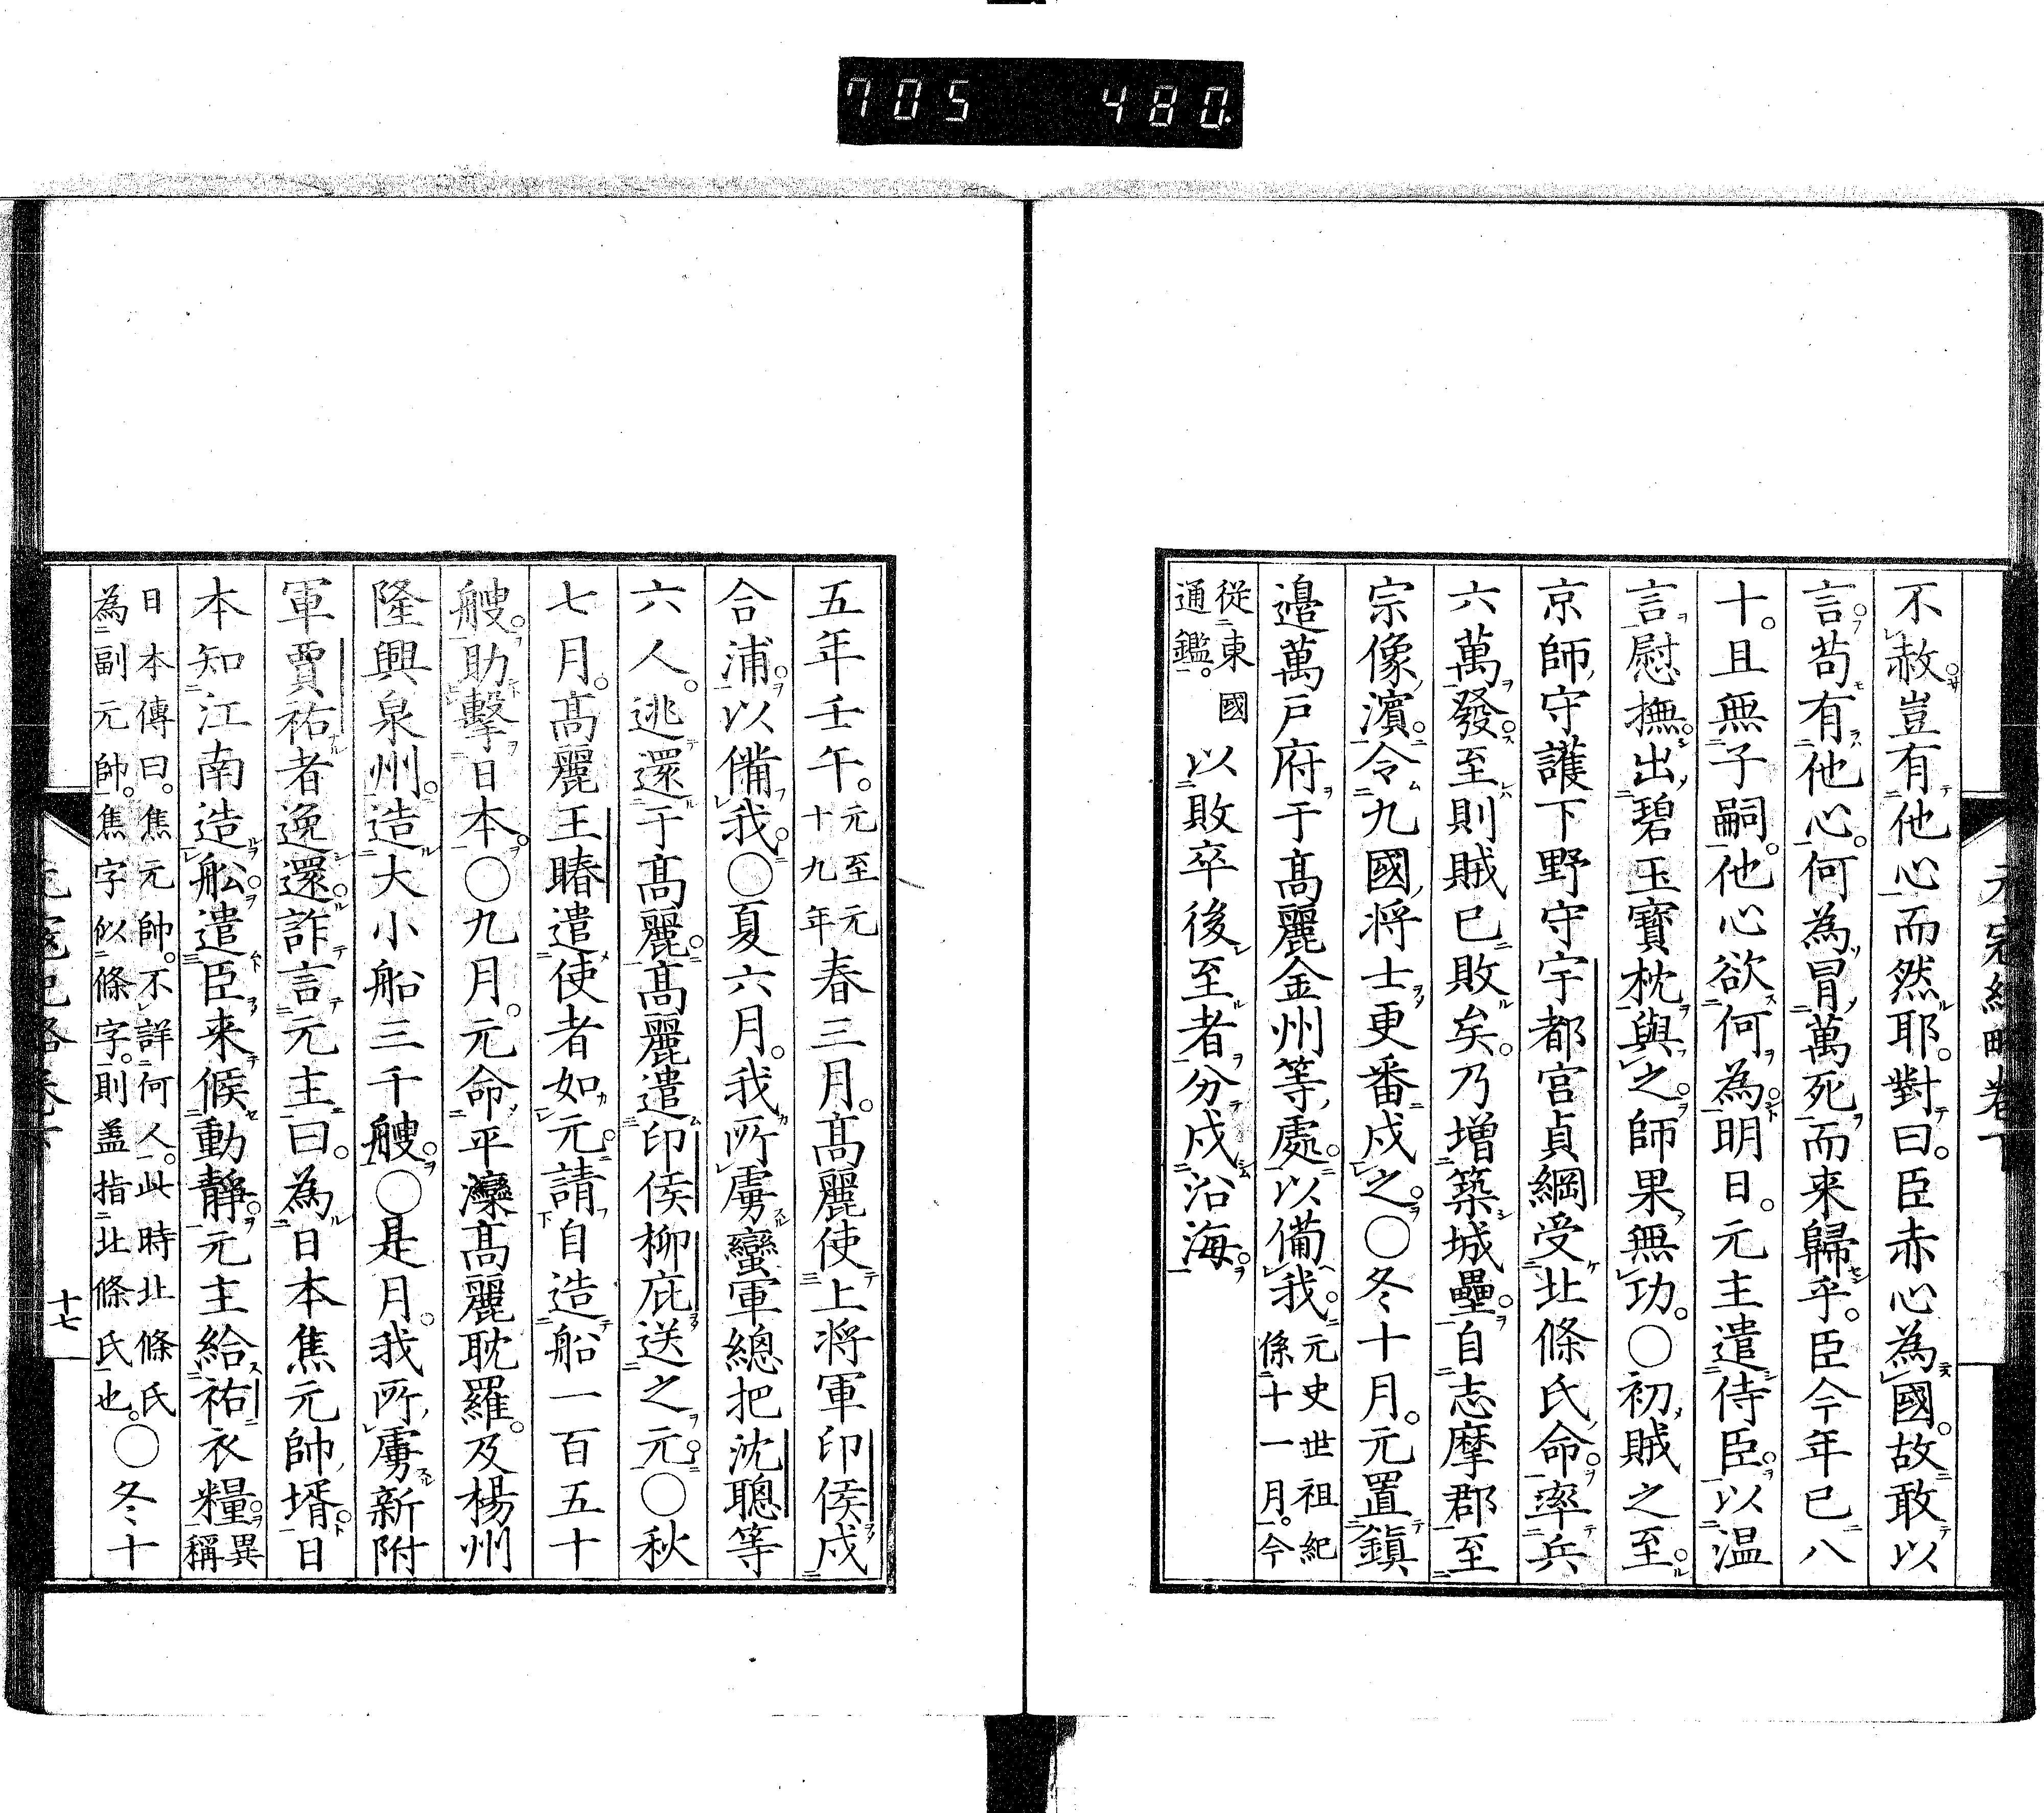 705 480
元寇紀略卷下
不赦豈有他心而然耶對曰臣赤心為國故敢以
言苟有他心何為冒萬死而来歸乎臣今年已八
十且無子嗣他心欲何為明日元主遣侍臣以温
言慰撫出碧玉寶枕與之師果無功○初賊之至
京師守護下野守宇都宮貞綱受北條氏命率兵
六萬發至則賊已敗矣乃增築城壘自志摩郡至
宗像濱令九國将士更番戍之○冬十月元置鎮
邊萬戸府于髙麗金州等處以備我元史世祖紀
係十一月今
從東國
通鑑以敗卒後至者分戍沿海
五年壬午元至元
十九年春三月髙麗使上将軍印侯戍
合浦以備我○夏六月我所虜蠻軍總把沈聰等
六人逃還于髙麗髙麗遣印侯柳庇送之元○秋
七月髙麗王賰遣使者如元請自造船一百五十
艘助擊日本○九月元命平灤髙麗耽羅及楊州
隆興泉州造大小船三千艘○是月我所虜新附
軍賈祐者逸還詐言元主曰為日本焦元帥壻日
本知江南造舩遣臣来候動靜元主給祐衣糧異
稱
日本傳曰焦元帥不詳何人此時北條氏
為副元帥焦字似條字則盖指北條氏也○冬十
十七